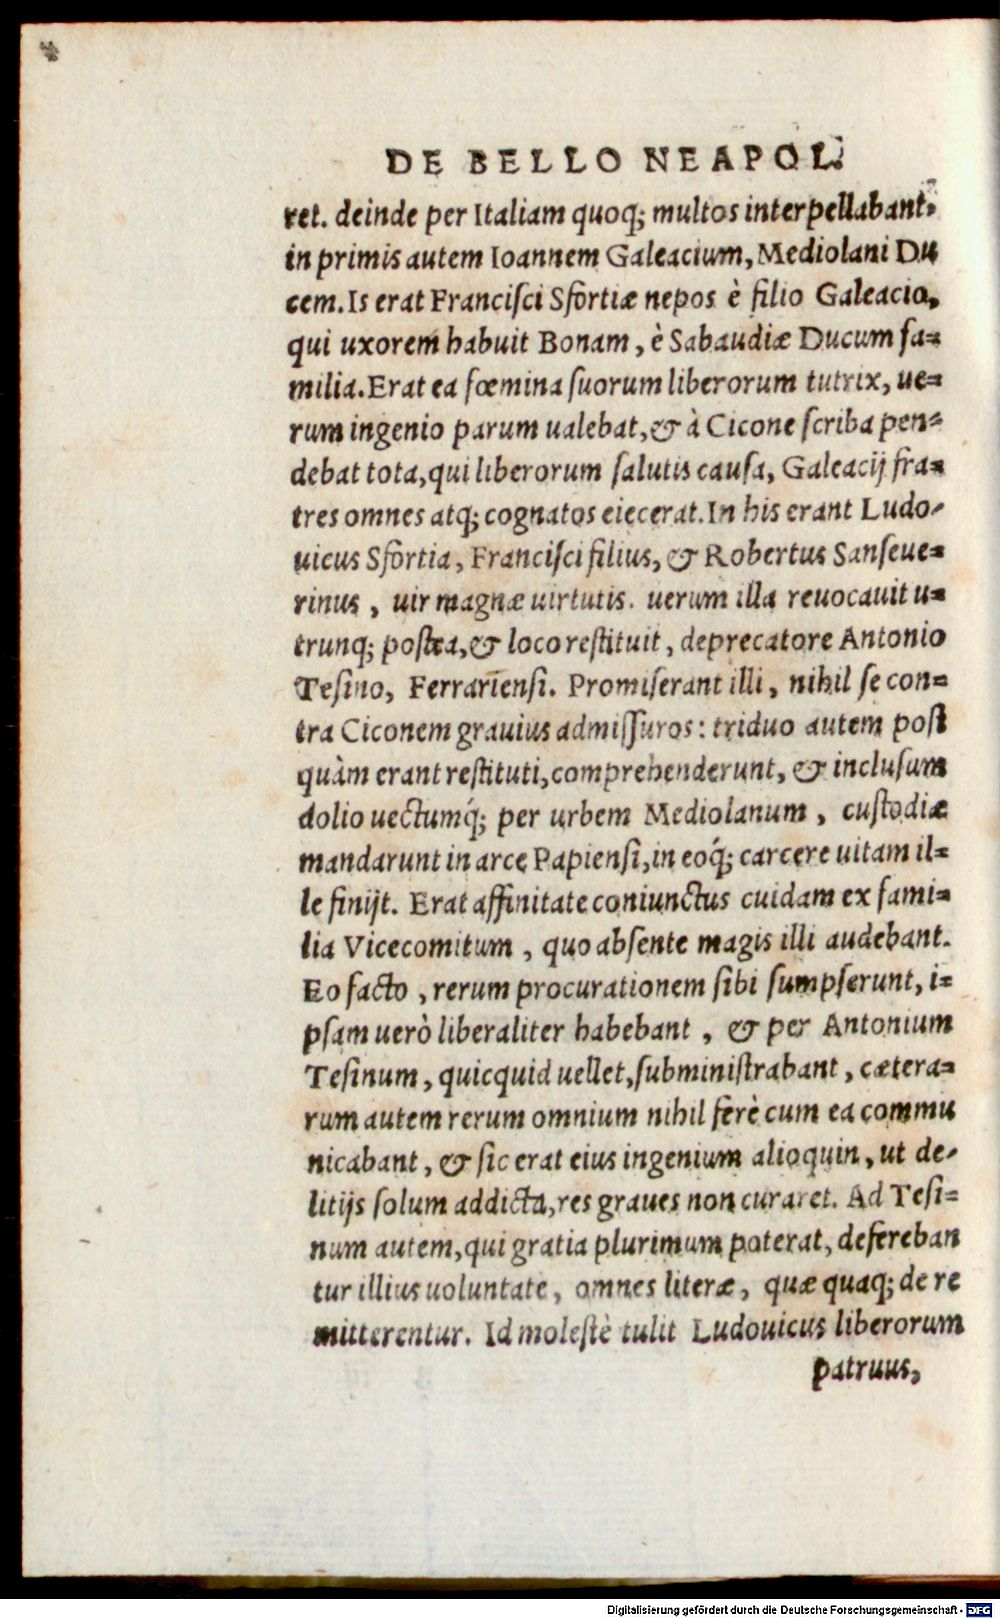 DE BELLO NEAPOL.
ret. deinde per Italiam quoq; multos interpellabant.
in primis autem Ioannem Galeacium, Mediolani Du
cem. Is erat Francisci Sfortiæ nepos è filio Galeacio,
qui uxorem habuit Bonam, è Sabaudiæ Ducum fa=
milia. Erat ea fœmina suorum liberorum tutrix, ue=
rum ingenio parum ualebat, & à Cicone scriba pen=
debat tota, qui liberorum salutis causa, Galeacij fra=
tres omnes atq; cognatos eiecerat. In his erant Ludo-
uicus Sfortia, Francisci filius, & Robertus Sanseue=
rinus, uir magnæ uirtutis. uerum illa reuocauit u=
trunq; postea, & loco restituit, deprecatore Antonio
Tesino, Ferrariensi. Promiserant illi, nihil se con=
tra Ciconem grauius admissuros: triduo autem post
quàm erant restituti, comprehenderunt, & inclusum
dolio uectumq́; per urbem Mediolanum, custodiæ
mandarunt in arce Papiensi, in eoq́; carcere uitam il=
le finijt. Erat affinitate coniunctus cuidam ex fami=
lia Vicecomitum, quo absente magis illi audebant.
Eo facto, rerum procurationem sibi sumpserunt, i=
psam uerò liberaliter habebant, & per Antonium
Tesinum, quicquid uellet, subministrabant, cætera=
rum autem rerum omnium nihil ferè cum ea commu
nicabant, & sic erat eius ingenium alioquin, ut de-
litijs solum addicta, res graues non curaret. Ad Tesi=
num autem, qui gratia plurimum poterat, defereban
tur illius uoluntate, omnes literæ, quæ quaq; de re
mitterentur. Id molestè tulit Ludouicus liberorum
patruus,
Digitalisierung gefördert durch die Deutsche Forschungsgemeinschaft - DFG